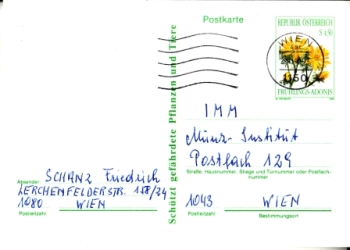 Postkarte
REPUBLIK ÖSTERREICH
S 4.50
WIEN
1150
FRÜHLINGS-ADONIS
Schützt gefährdete Pflanzen und Tiere
IMM
Münz-Institut
Postfach 129
Straße, Hausnummer, Stiege und Türnummer oder Postfach-
nummer
1043 WIEN
Postleitzahl Bestimmungsort
SCHANZ Friedrich
Absender
LERCHENFELDERSTR. 158/24
1080 WIEN
Postleitzahl